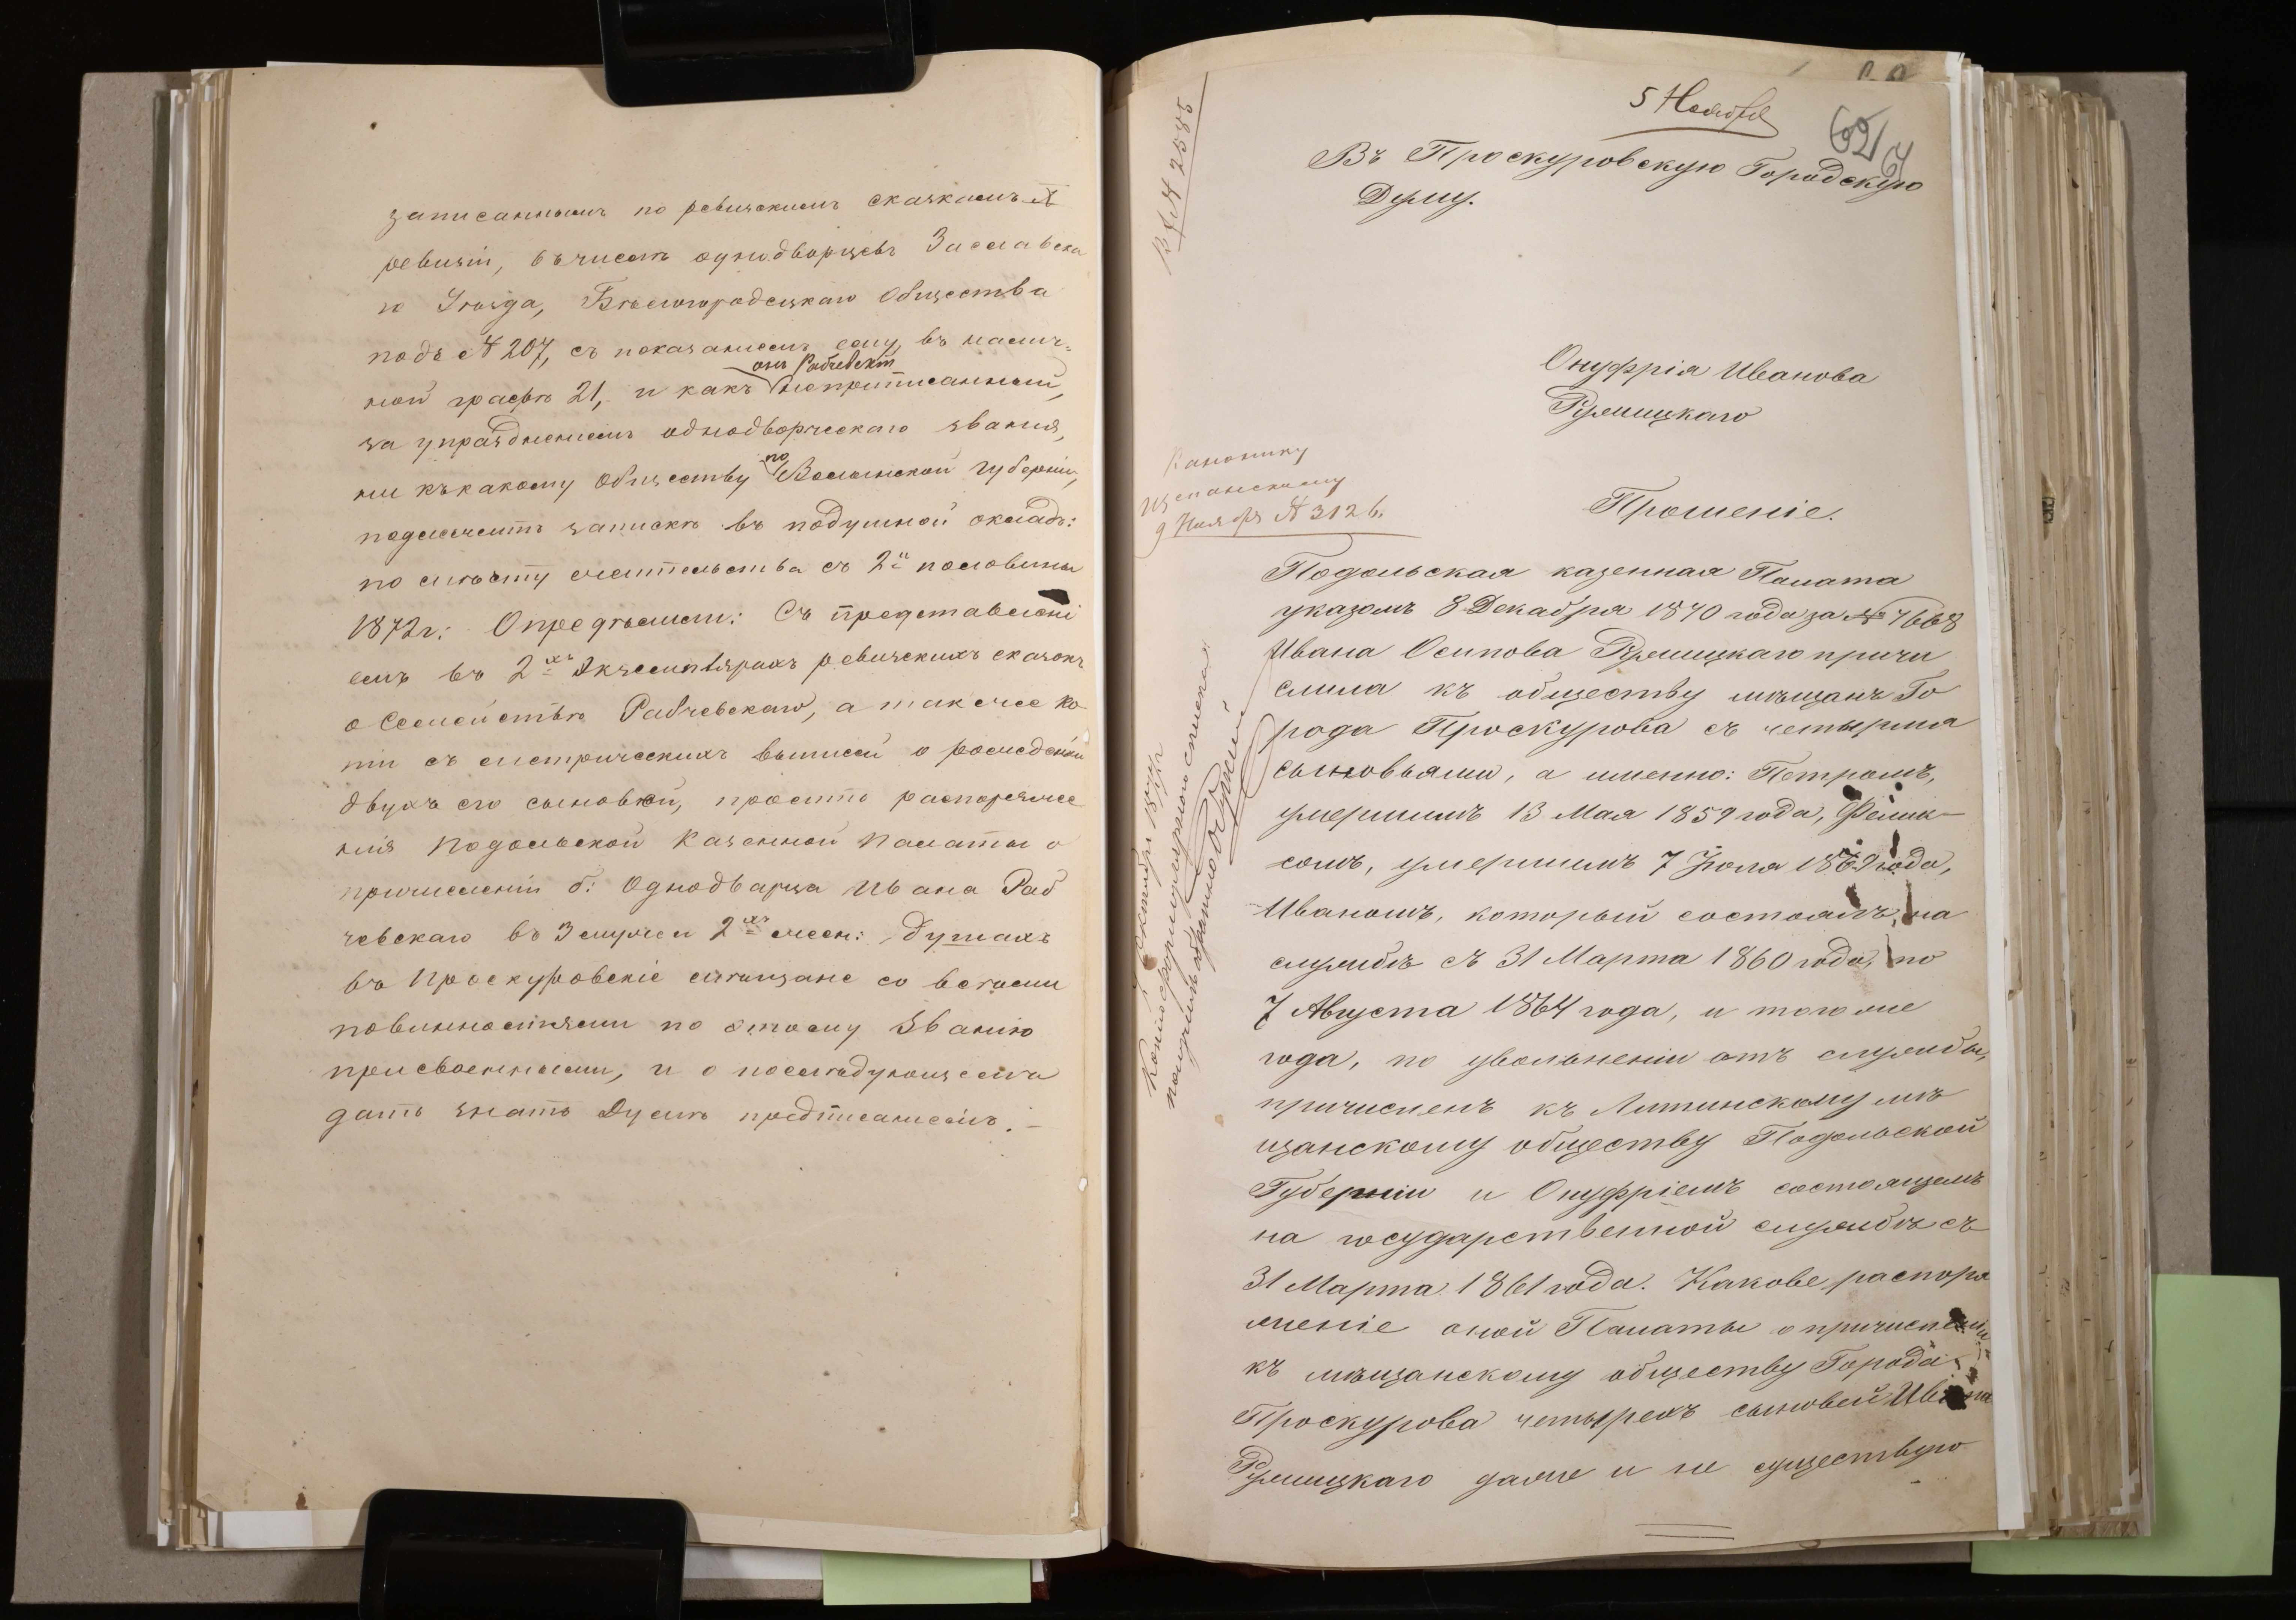 записаннымъ по ревизскимъ сказкамъ X
ревизіи, въ числѣ однодворцевъ Заславска
го Уѣзда, Бѣлогородецкаго Общества
подъ № 207, съ показаніемъ ему, въ налич-
онъ Рабчевскій
ной графѣ 21, и какъ неприписанный,
за упраздненіемъ однодворческаго званія,
ни къ какому обществу по Волынской губерніи,
подлежитъ запискѣ въ подушной окладъ:
по мѣсту жительства съ 2й половины
1872 г: Опредѣлили: Съ представлені
емъ въ 2хъ Экземплярахъ ревизскихъ сказокъ
о Семействѣ Рабчевскаго, а также ко
піи съ метрическихъ выписей о рожденіи
двухъ его сыновей, просить распоряже
нія Подольской Казенной Палаты о
причисленіи б: Однодворца Ивана Раб
чевскаго въ 3 муж: и 2хъ жен: душахъ
въ Проскуровскіе мѣщане со всѣми
повинностями по этому званію
присвоенными, и о послѣдующемъ
дать знать Думѣ предписаніемъ.
5 Ноября
62
Въ Проскуровскую Городскую
Думу.
В. № 2585
Онуфрія Иванова
Ружицкаго
Канонику
9 Ноября № 3126.
Прошеніе.
Подольская казенная Палата
указомъ 8 Декабря 1870 года за № 7668
Ивана Осипова Ружицкаго причи
слила къ обществу мѣщанъ Го
рода Проскурова съ четырмя
сыновьями, а именно: Петромъ,
умершимъ 13 Мая 1859 года, Фелик-
сомъ, умершимъ 7 Іюля 1869 года,
Иваномъ, который состоялъ на
службѣ съ 31 Марта 1860 года, по
7 Августа 1864 года, и того же
года, по увольненіи отъ службы,
причисленъ къ Литинскому мѣ
щанскому обществу Подольской
Губерніи и Онуфріемъ состоящемъ
на государственной службѣ съ
31 Марта 1861 года. Какове распоря
женіе оной Палаты о причисленіи
къ мѣщанскому обществу Города
Проскурова четырехъ сыновей Ивана
Ружицкаго даже и не существую
Копію съ формулярнаго списка
получилъ обратно